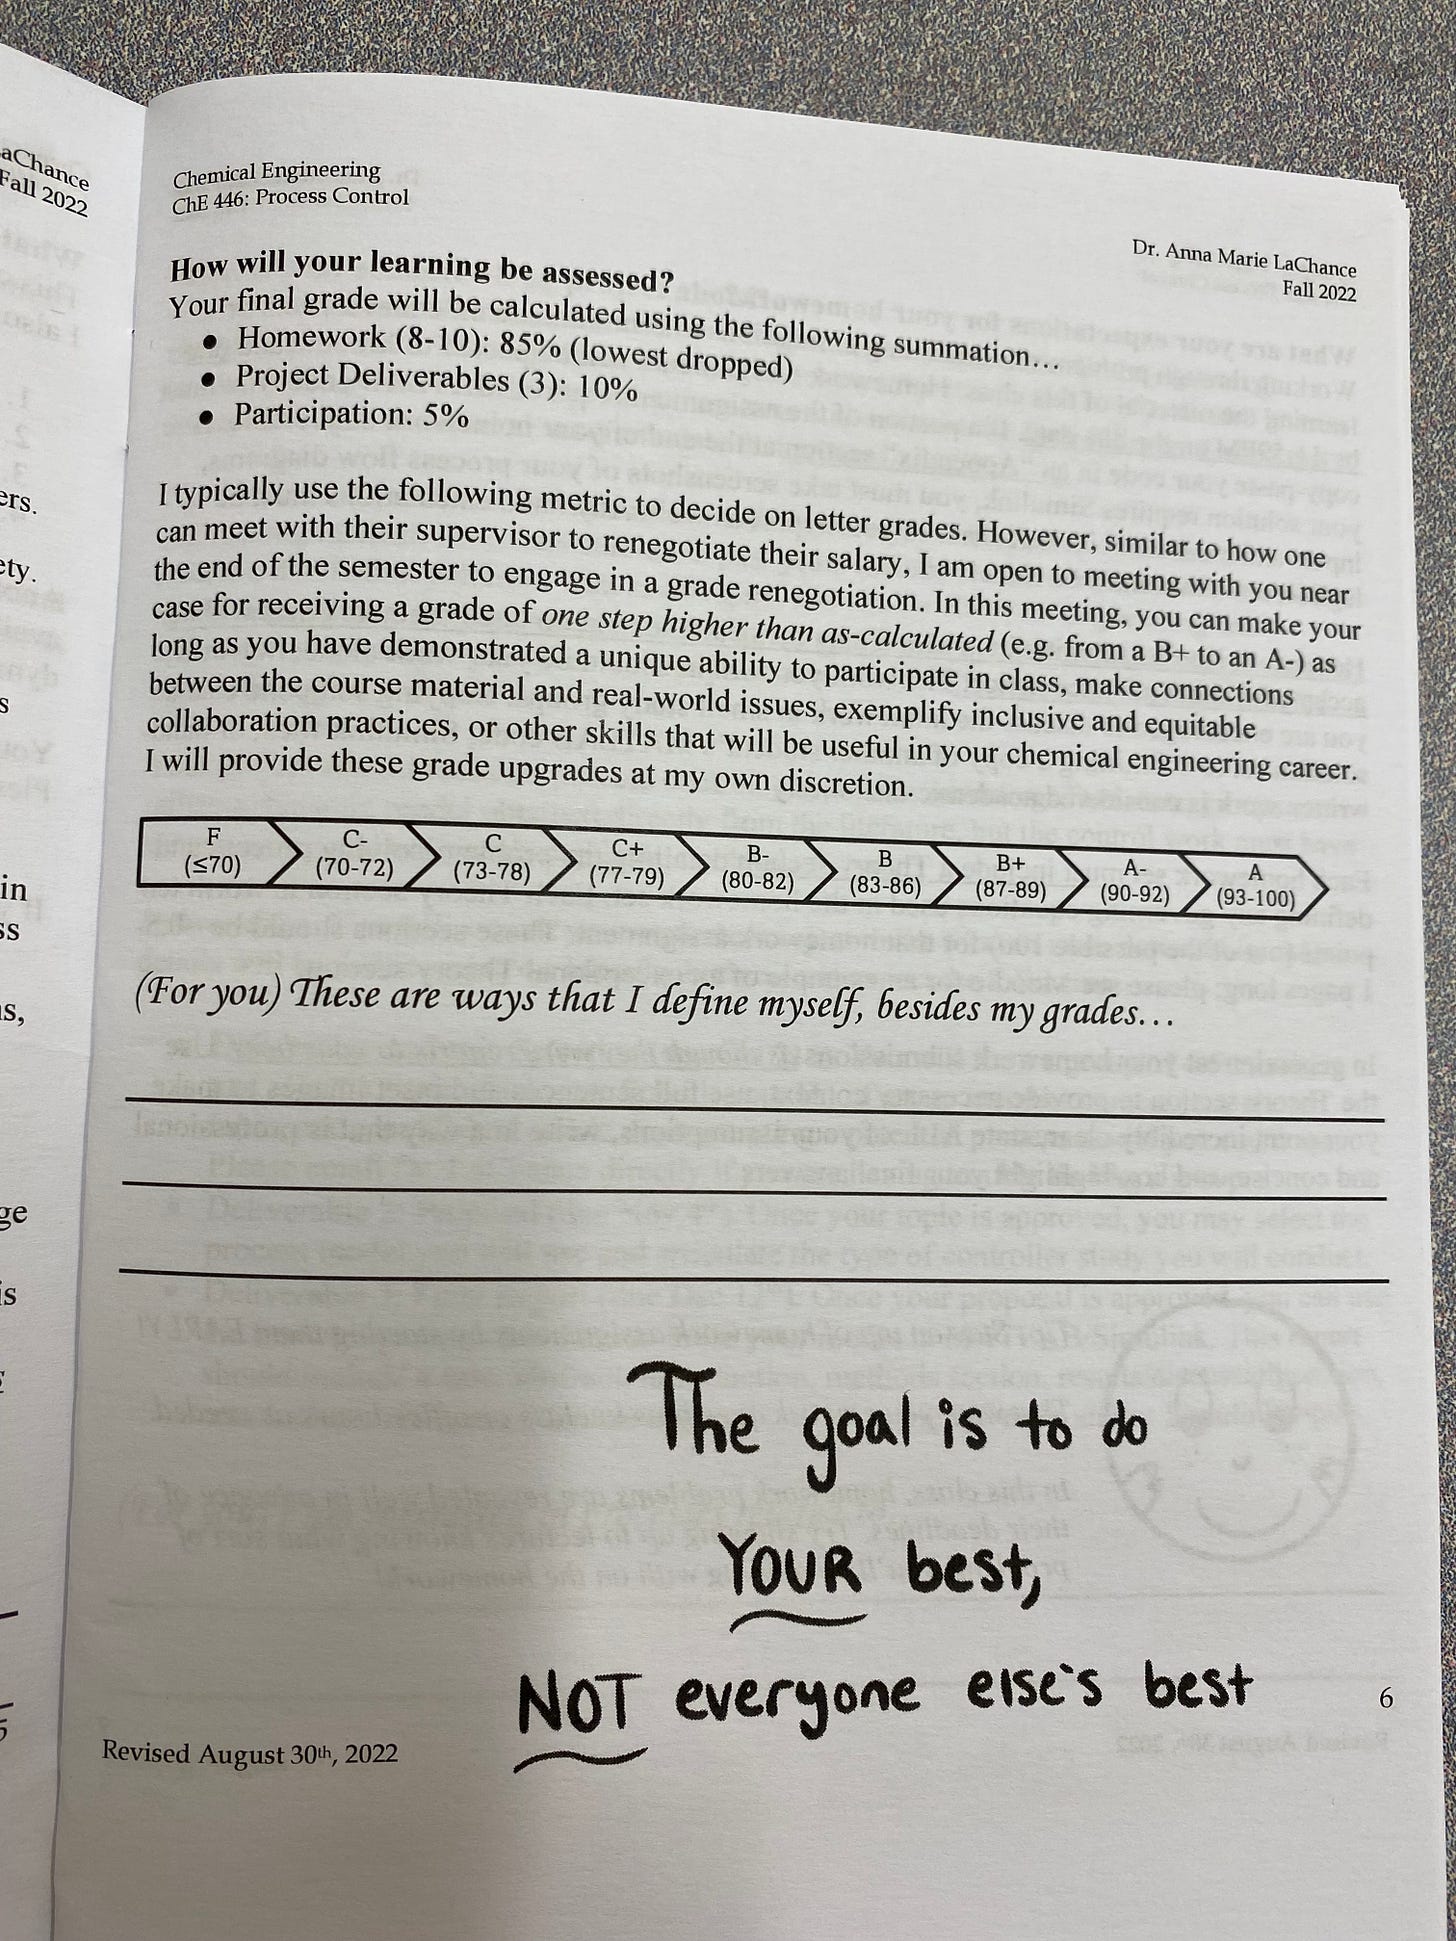 aChance
Fall 2022
ers.
ety.
s
in
ss
s,
ge
is
5
Chemical Engineering
ChE 446: Process Control
Dr. Anna Marie LaChance
Fall 2022
How will your learning be assessed?
Your final grade will be calculated using the following summation…
● Homework (8-10): 85% (lowest dropped)
● Project Deliverables (3): 10%
● Participation: 5%
I typically use the following metric to decide on letter grades. However, similar to how one
can meet with their supervisor to renegotiate their salary, I am open to meeting with you near
the end of the semester to engage in a grade renegotiation. In this meeting, you can make your
case for receiving a grade of one step higher than as-calculated (e.g. from a B+ to an A-) as
long as you have demonstrated a unique ability to participate in class, make connections
between the course material and real-world issues, exemplify inclusive and equitable
collaboration practices, or other skills that will be useful in your chemical engineering career.
I will provide these grade upgrades at my own discretion.
F
(≤70)
C-
(70-72)
C
(73-78)
C+
(77-79)
B-
(80-82)
B
(83-86)
B+
(87-89)
A-
(90-92)
A
(93-100)
(For you) These are ways that I define myself, besides my grades…
The goal is to do
YOUR best,
NOT everyone else's best
6
Revised August 30th, 2022